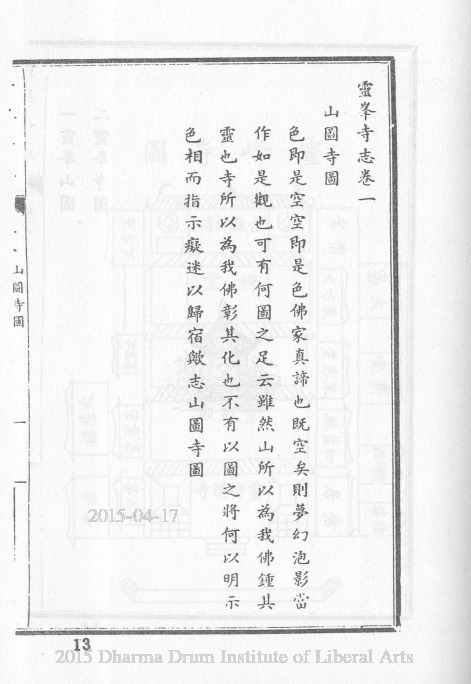 靈峯寺志卷一
山圖寺圖
色即是空空即是色佛家真諦也既空矣則夢幻泡影當
作如是觀也可有何圖之足云雖然山所以為我佛鍾其
靈也寺所以為我佛彰其化也不有以圖之將何以明示
色相而指示癡迷以歸宿歟志山圖寺圖
山圖寺圖
一
2015-04-17
13
2015 Dharma Drum Institute of Liberal Arts